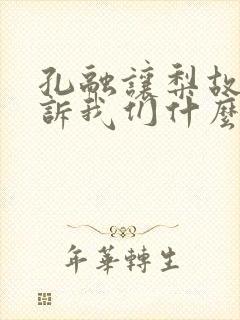 孔融讓梨故
訴我们什麼
年華轉生